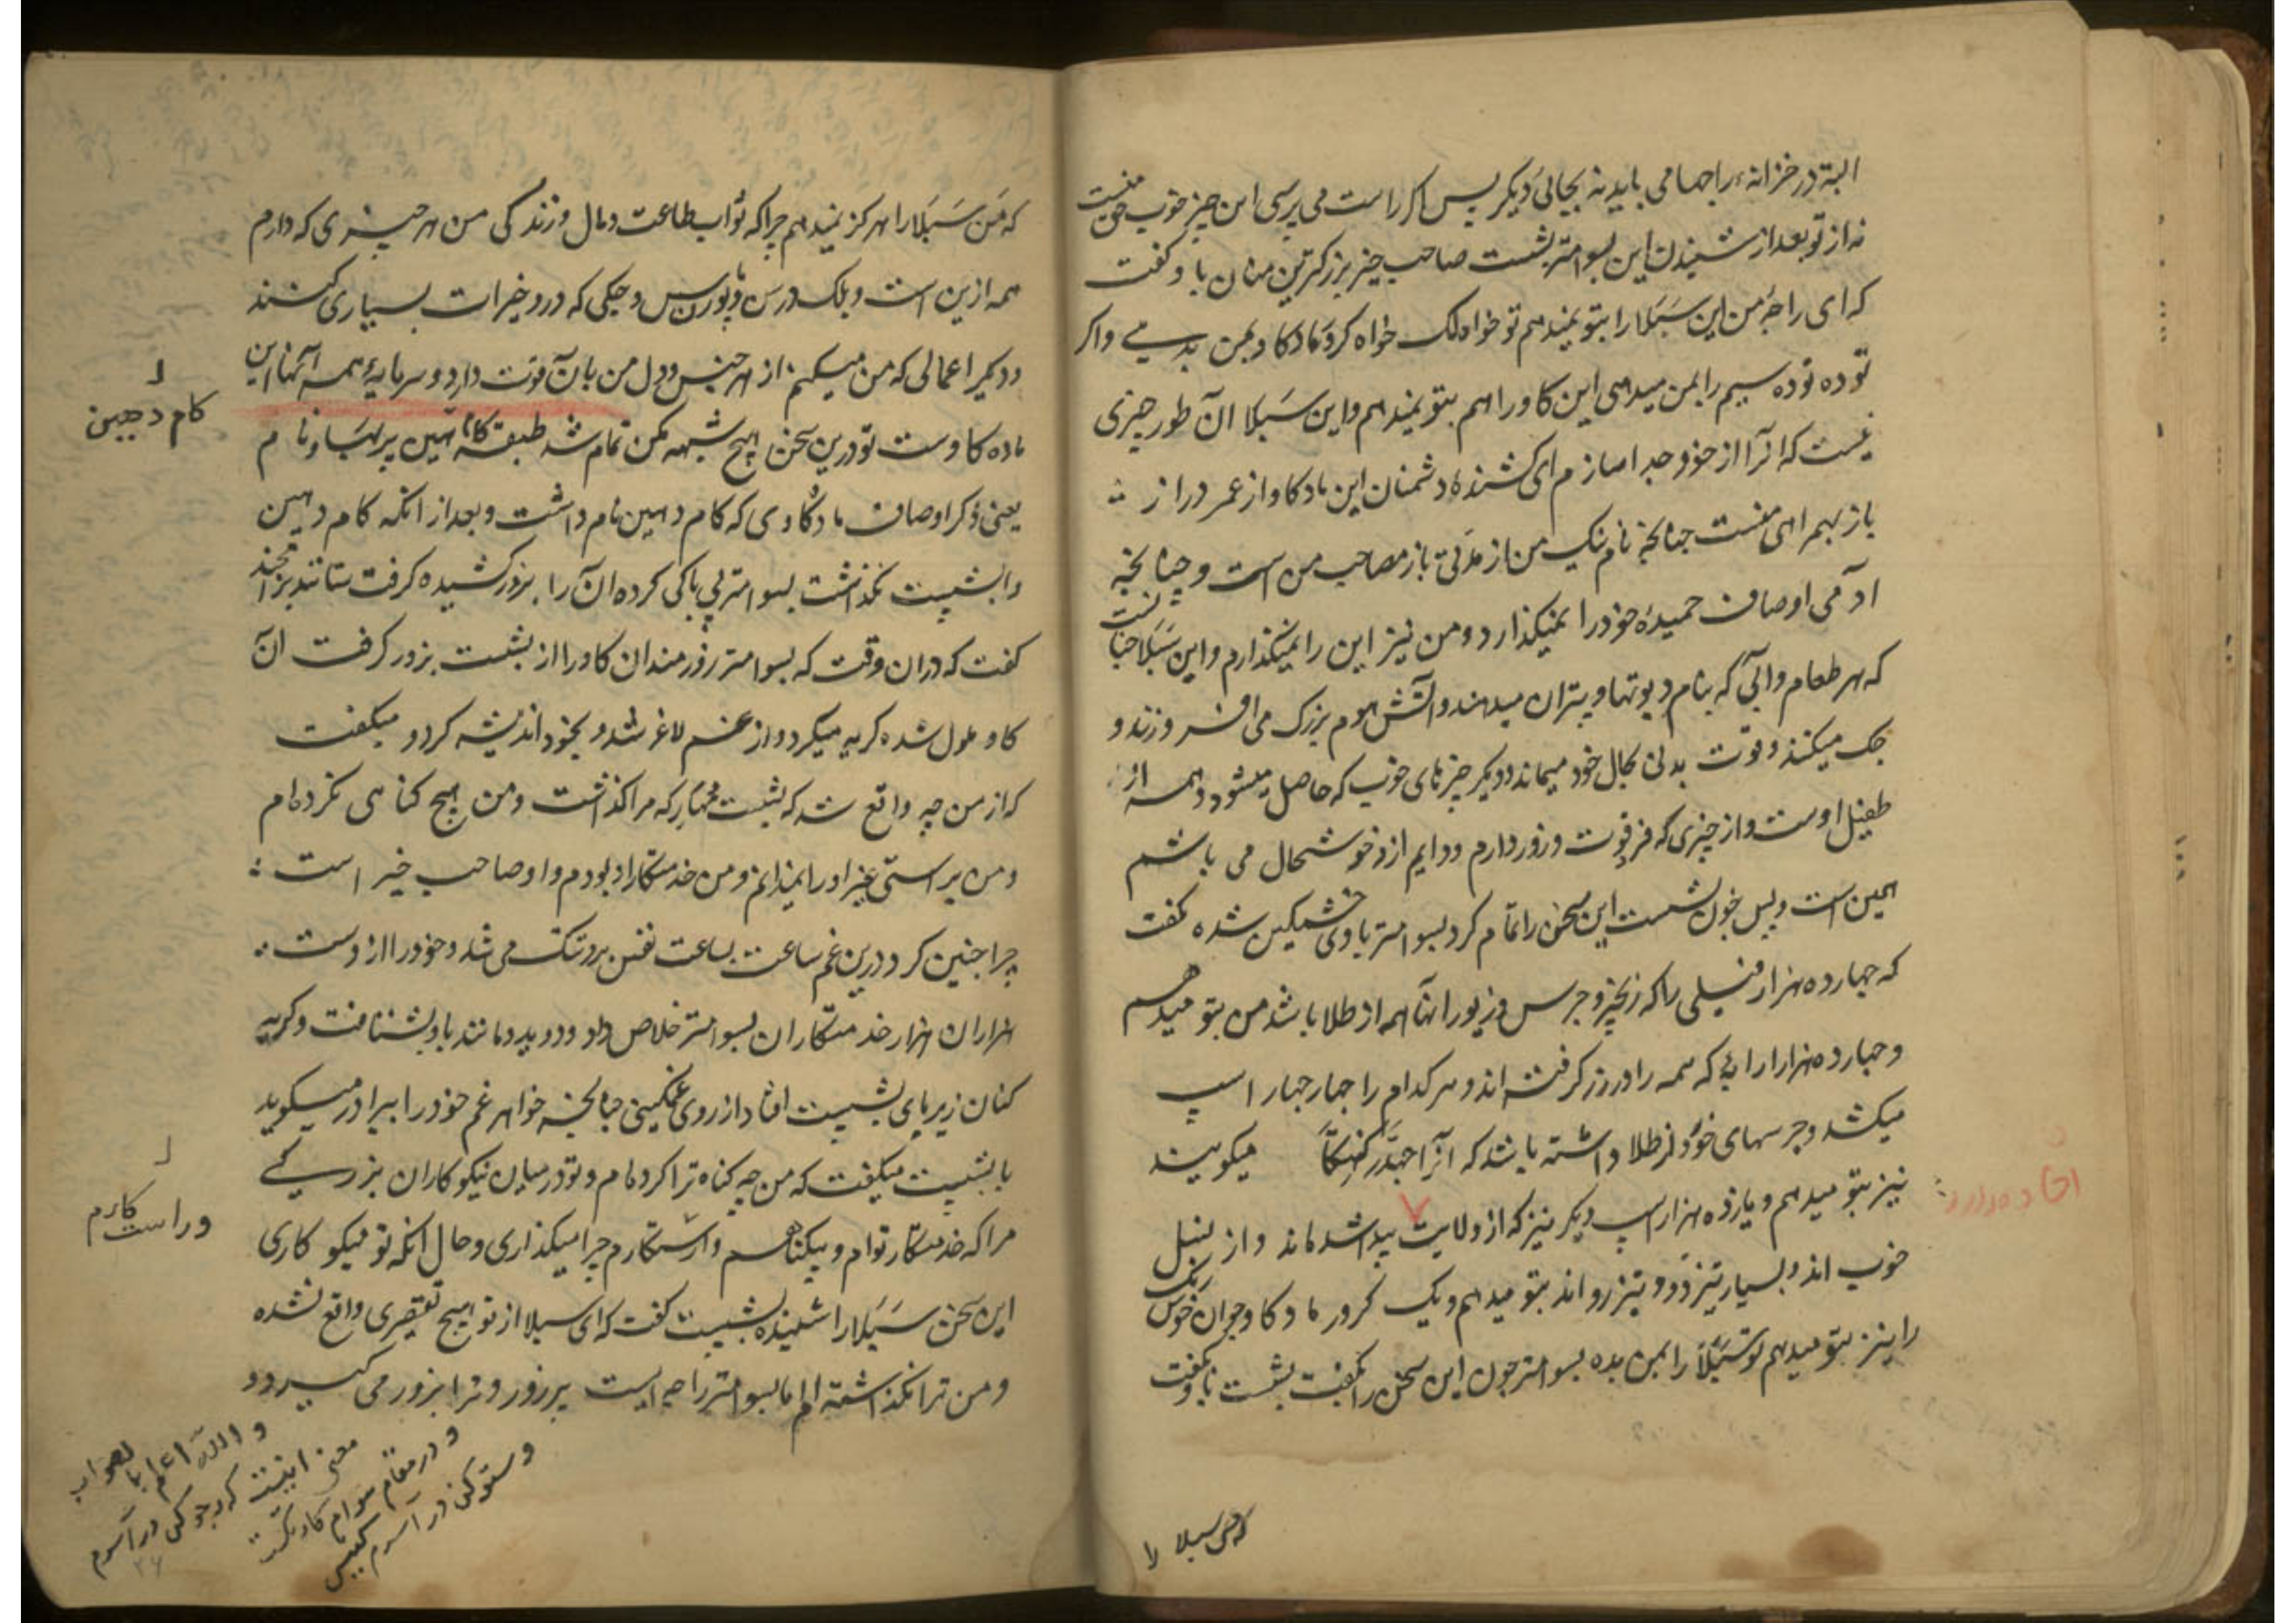 البته در خزانهٔ راجها می باید نه بجائی دیکر پس اکر راست می پرسی این چیز خوب حق منست
نه از تو بعد از شنیدن این بسوامتر بشست صاحب خیر بزرکترین منان باو کفت
که ای راجه من این سَبَلا را بتو نمیدهم تو خواه لک خواه کرو مادکاو بمن بدهی واکر
توده توده سیم را بمن میدهی این کاو را هم بتو نمیدهم واین سَبَلا آن طور چیزی
نیست که آنرا از خود جدا سازم ای کشندهٔ دشمنان این مادکاو از عمر دراز
باز بهمراهی منست چنانچه نام نیک من از مدتی باز مصاحب من است وچنانچه
آدمی اوصاف حمیدهٔ خود را نمیکذارد ومن نیز این را نمیکذارم واین سَبَلا چنانست
که هر طعام وآبی که بنام دیوتها وپتران میدهند وآتش هوم بزرک می افروزند و
جک میکنند وقوت بدنی بحال خود میماند ودیکر چیزهای خوب که حاصل میشود همه از
طفیل اوست واز چیزی که فر وقوت وزور دارم ودایم ازو خوشحال می باشم
همین است وپس چون بشست این سخن را تمام کرد بسوامتر باوی خشمکین شده کفت
که چهارده هزار فیلی را که زنجیر وجرس وزیور آنها همه از طلا باشد من بتو میدهم
وچهارده هزار ارابهٔ که همه را در زر کرفته اند وهر کدام را چهار چهار اسپ
میکشد وجرسهای خورد از طلا داشته باشد که آنرا میکویند
نیز بتو میدهم ویازده هزار اسپ دیکر نیز که از ولایت پیدا شده اند واز نسل
خوب اند وبسیار تیز دو وتیز رو اند بتو میدهم ویک کرور مادکاو جوان خوش رنک
را نیز بتو میدهم تو سَبَلا را بمن بده بسوامتر چون این سخن را کفت بشست باو کفت
که من سبلا را
که من سَبَلا را هرکز نمیدهم چرا که ثواب طاعت ومال وزندکی من هر چیزی که دارم
همه ازین است وبلک درس وپورنماس وجکی که درو خیرات بسیاری کنند
ودیکر اعمالی که من میکنم از هر جنس ودل من بآن قوت دارد وسرمایهٔ همه آنها این
ماده کاوست تو درین سخن هیچ شبهه مکن تمام شد طبقهٔ کام دهین پربهاو نام
یعنی ذکر اوصاف مادکاوی که کام دهین نام داشت وبعد از آنکه کام دهین
را بشست نکذاشت بسوامتر بی باکی کرده آن را بزور کشیده کرفت
کفت که دران وقت که بسوامتر زورمند آن کاو را از بشست بزور کرفت آن
کاو ملول شده کریه میکرد واز غم لاغر شد وبخود اندیشه کرد و میکفت
که از من چه واقع شد که بشست مرا کذاشت ومن هیچ کناهی نکرده ام
ومن براستی غیر او را نمیدانم ومن خدمتکار او بودم واو صاحب خیر است
چرا چنین کرد ودرین غم ساعت بساعت نفس برو تنک می شد وخود را از دست
هزاران هزار خدمتکاران بسوامتر خلاص داد ودوید ومانند باد بشتافت وکریه
کنان زیر پای بشست افتاد از روی غمکینی چنانچه خواهر غم خود را ببرادر میکوید
با بشست میکفت که من چه کناه ترا کرده ام وتو در میان نیکوکاران بزرکی
مرا که خدمتکار توام وبیکناهم وراستکارم چرا میکذاری وحال آنکه تو نیکو کاری
این سخن سَبَلا را شنیده بشست کفت که ای سبلا از تو هیچ تقصیری واقع نشده
ومن ترا نکذاشته ام اما بسوامتر راجه ایست پر زور وترا بزور می کیرد و
کام دهین
وراست کارم
والله اعلم بالصواب
معنی اینست که در جوکی در آسرم
ودر مقام
وستوکی در آسرم